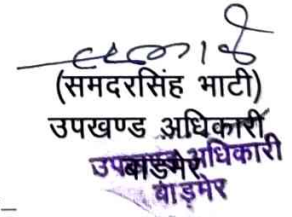 (समदरसिंह भाटी)
उपखण्ड अधिकारी
बाड़मेर
उपखण्ड अधिकारी
बाड़मेर